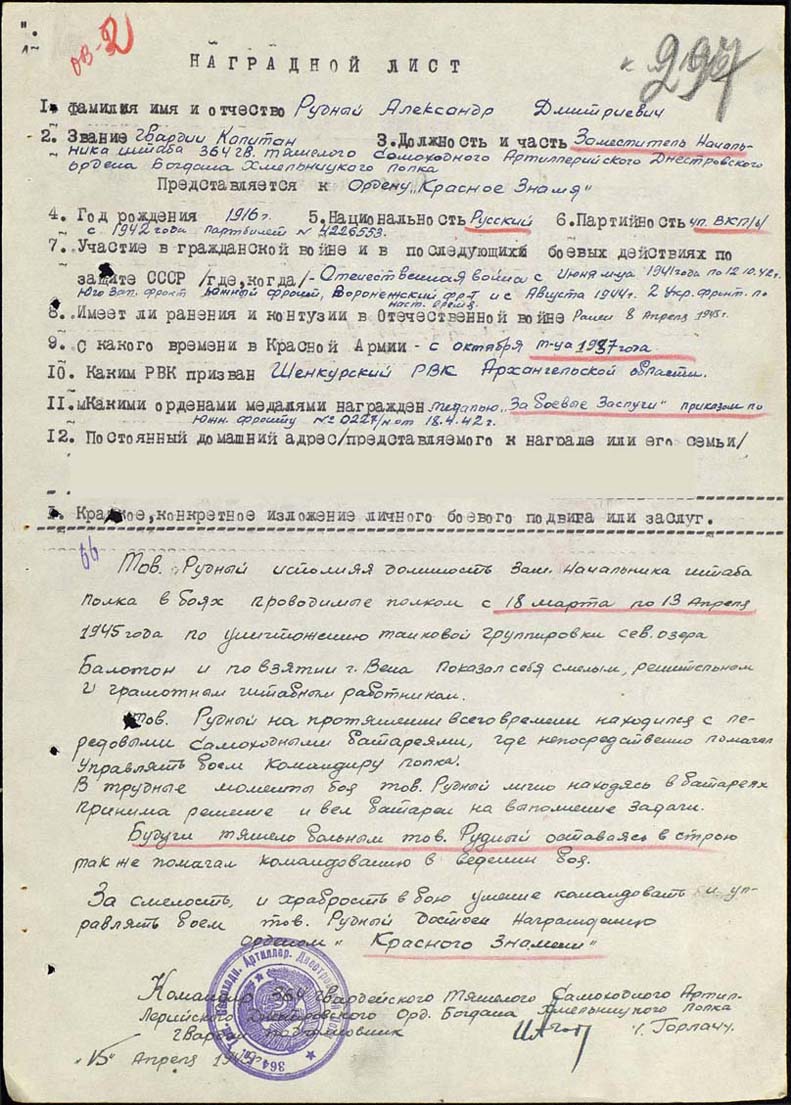 ОВ-2
297
НАГРАДНОЙ ЛИСТ
1. Фамилия имя и отчество Рудный Александр Дмитриевич
2. Звание Гвардии Капитан 3. Должность и часть Заместитель Началь-
ника штаба 364 гв. тяжелого Самоходного Артиллерийского Днестровского
ордена Богдана Хмельницкого полка
Представляется к Ордену „Красное Знамя"
4. Год рождения 1916 г. 5. Национальность Русский 6. Партийность чл. ВКП/б/
с 1942 года партбилет № 4226559.
7. Участие в гражданской войне и в последующих боевых действиях по
защите СССР /где, когда/ - Отечественная война с Июня м-ца 1941 года по 12.10.42 г.
Юго Зап. фронт Южный фронт, Воронежский фр-т и с Августа 1944 г. 2 Укр. фронт. по
наст. время.
8. Имеет ли ранения и контузии в Отечественной войне Ранен 8 Апреля 1945 г.
9. С какого времени в Красной Армии - с октября м-ца 1937 года
10. Каким РВК призван Шенкурский РВК Архангельской области.
11. Какими орденами медалями награжден медалью „За боевые Заслуги" приказом по
Южн. фронту № 0227/н от 18.4.42 г.
12. Постоянный домашний адрес/представляемого к награде или его семьи/
1. Краткое, конкретное изложение личного боевого подвига или заслуг.
66
Тов. Рудный исполняя должность Зам. Начальника штаба
полка в боях проводимые полком с 18 марта по 13 Апреля
1945 года по уничтожению танковой группировки сев. озера
Балотон и по взятии г. Вена показал себя смелым, решительном
и грамотным штабным работникам.
Тов. Рудный на протяжении всего времени находился с пе-
редовыми самоходными батареями, где непосредственно помагал
управлять боем Командиру полка.
В трудные моменты боя тов. Рудный лично находясь в батареях
принима решение и вел батареи на выполнение задачи.
Будучи тяжело больным тов. Рудный оставаясь в строю
так же помагал командованию в ведении боя.
За смелость, и храбрость в бою умение командовать и уп-
равлять боем тов. Рудный достоен Награждению
орденом „Красного Знамени"
Командир 364 гвардейского Тяжелого Самоходного Артил-
лерийского Днестровского Орд. Богдана Хмельницкого полка
Гвардии подполковник / Горлач/.
"15" Апреля 1945 г.
Самоходн. Артиллер. Днестровский
364